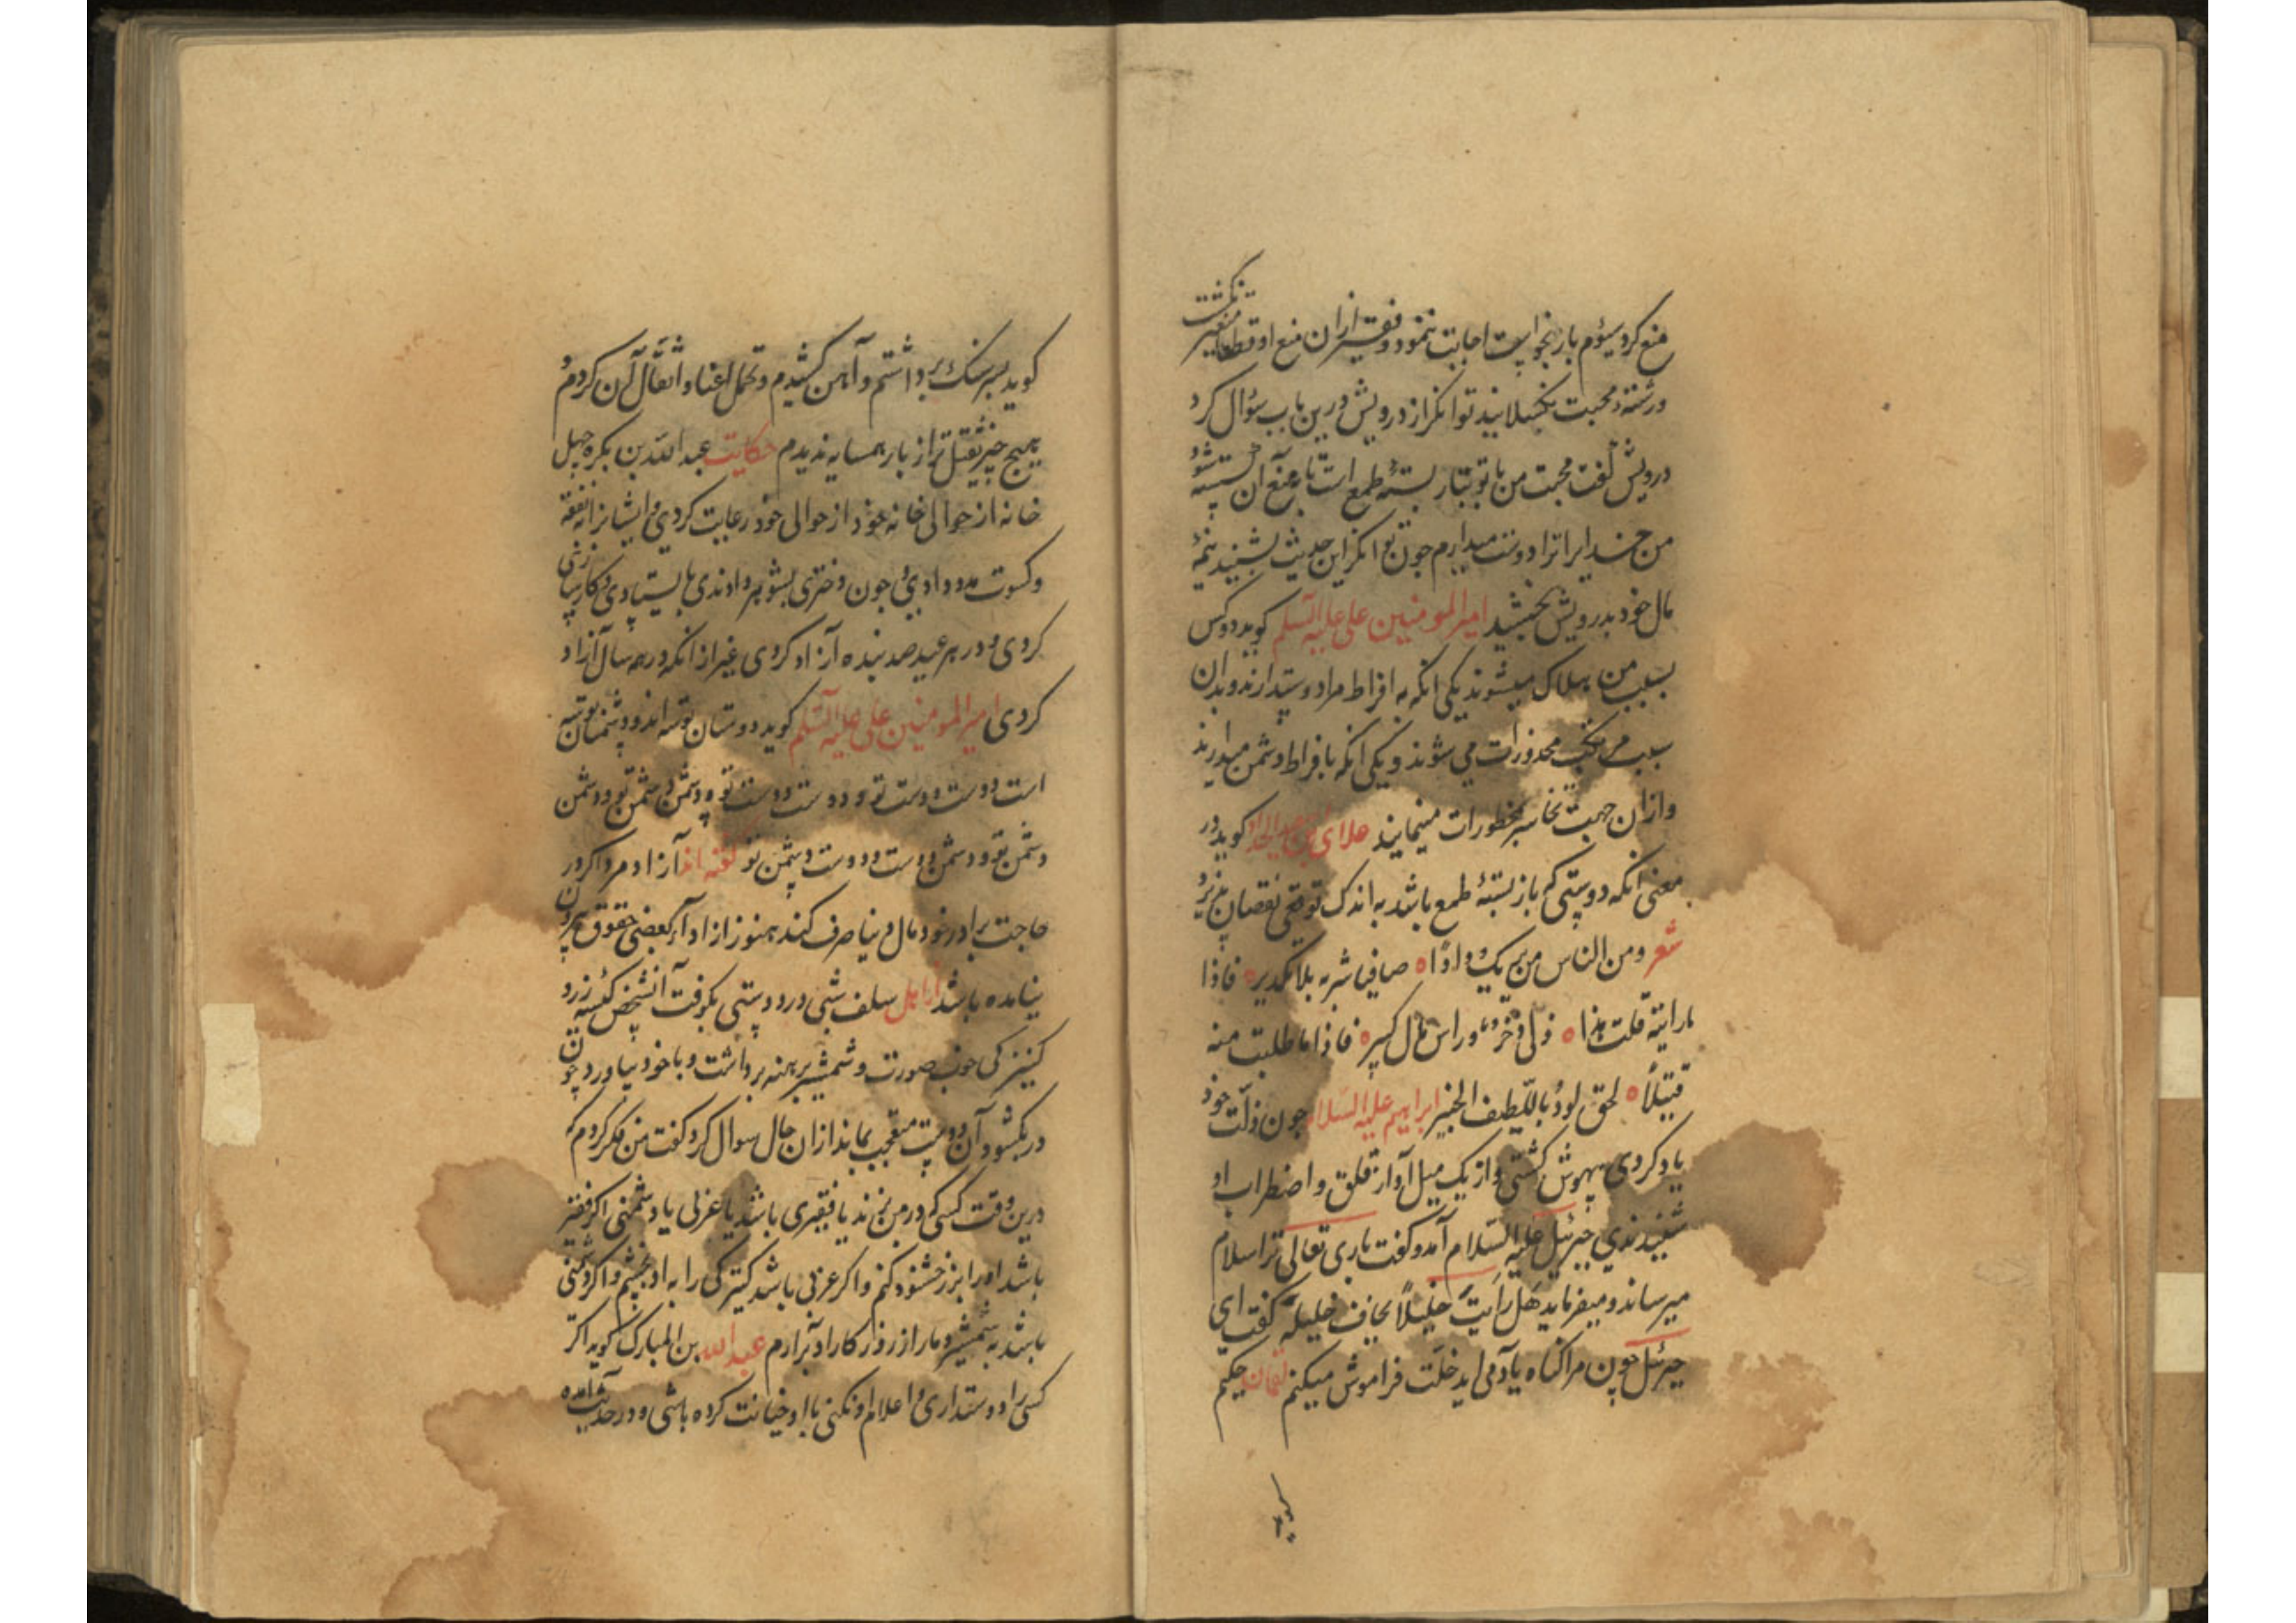 منع کرد سیوم بار بخواست اجابت ننمود و فقیر ازان منع او قطعا متغیر نکشت
ورشتهٔ محبت نکسلانید توانکر از درویش درین باب سؤال کرد
درویش کفت محبت من با تو نه باز بستهٔ طمع است تا بمنع آن خسته شود
من خدایرا ترا دوست میدارم جون توانکر این حدیث بشنید نیمهٔ
مال خود بدرویش بخشید امیر المومنین علی علیه السلم کوید دو کس
بسبب من هلاک میشوند یکی انکه به افراط مرا دوست دارند و بدان
سبب مرتکب محذورات می شوند و یکی انکه بافراط دشمن میدارند
وازان جهت تجاسر بمحظورات مینمایند علای کوید در
معنی انکه دوستی که باز بستهٔ طمع باشد به اندک توقعی نقصان پذیرد
شعر ومن الناس من یریک ودادًا ه صافیا شربه بلا تکدیر ه فاذا
ما رایته قلت هذا ه لی ذخر و راس مال کبیر ه فاذا ما طلبت منه
فتیلًا ه لحق الود باللطیف الخبیر ابراهیم علیه السلام جون ذلت خود
یاد کردی بیهوش کشتی و از یک میل آواز قلق و اضطراب او
شنیدندی جبرئیل علیه السلام آمد و کفت باری تعالی ترا سلام
میرساند و میفرماید هل رایت خلیلًا یخاف خلیله کفت ای
جبرئیل چون مرا کناه یاد می اید خلت فراموش میکنم لقمان حکیم
کوید
کوید بسر سنک برداشتم و آهن کشیدم و تحمل اعنا و اثقال آن کردم
هیج چیز ثقیل تر از بار همسایه ندیدم حکایت عبد الله بن بکره جهل
خانه از حوالی خانه خود از حوالی خود رعایت کردی و ایشانرا نفقه
وکسوت مدد دادی جون دختری بشوهر دادندی بایستادی و کارسازی
کردی و در هر عید صد بنده آزاد کردی غیر از انکه در همه سال آزاد
کردی امیر المومنین علی علیه السلم کوید دوستان تو سه اند و دشمنان تو سه
است دوست و دوست تو و دوست دوست تو و دشمن دشمن تو و دشمن
دشمن تو و دشمن دوست و دوست دشمن تو کفته اند آزاد مرد اکر در
حاجت برادر خود مال دنیا صرف کند هنوز از ادآء بعضی حقوق بیرون
نیامده باشد از اهل سلف شبی در دوستی بکوفت آنشخص کیسه زر و
کنیزکی خوب صورت و شمشیر برهنه برداشت و با خود بیاورد چون
در بکشود آن دوست متعجب بماند ازان حال سوال کرد کفت من فکر کردم که
درین وقت کسی که در من زند یا فقیری باشد یا عزبی یا دشمنی اکر فقیر
باشد اورا بزر خشنود کنم و اکر عزبی باشد کنیزکی را به او بخشم و اکر دشمنی
باشد به شمشیر دمار از روزکار او برآرم عبد الله بن المبارک کوید اکر
کسی را دوستداری و اعلام او نکنی با او خیانت کرده باشی و در حدیث آمده